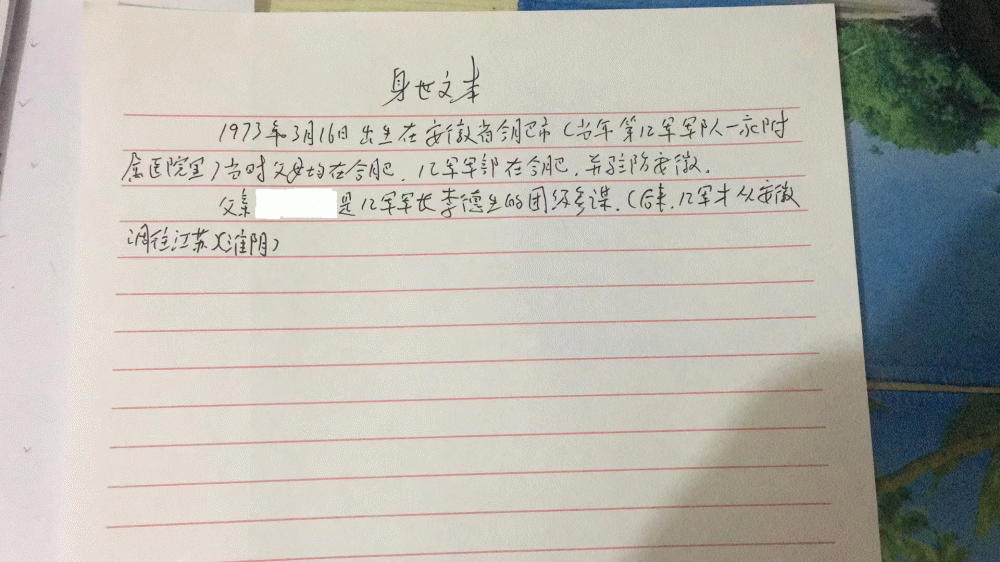 身世文本
1973年3月16日出生在安徽省合肥市(当年第12军军队一永附
属医院里)当时父母均在合肥.12军军部在合肥,并驻防安徽.
父亲 是12军军长李德生的团级参谋.(后来,12军才从安徽
调往江苏)(淮阴)